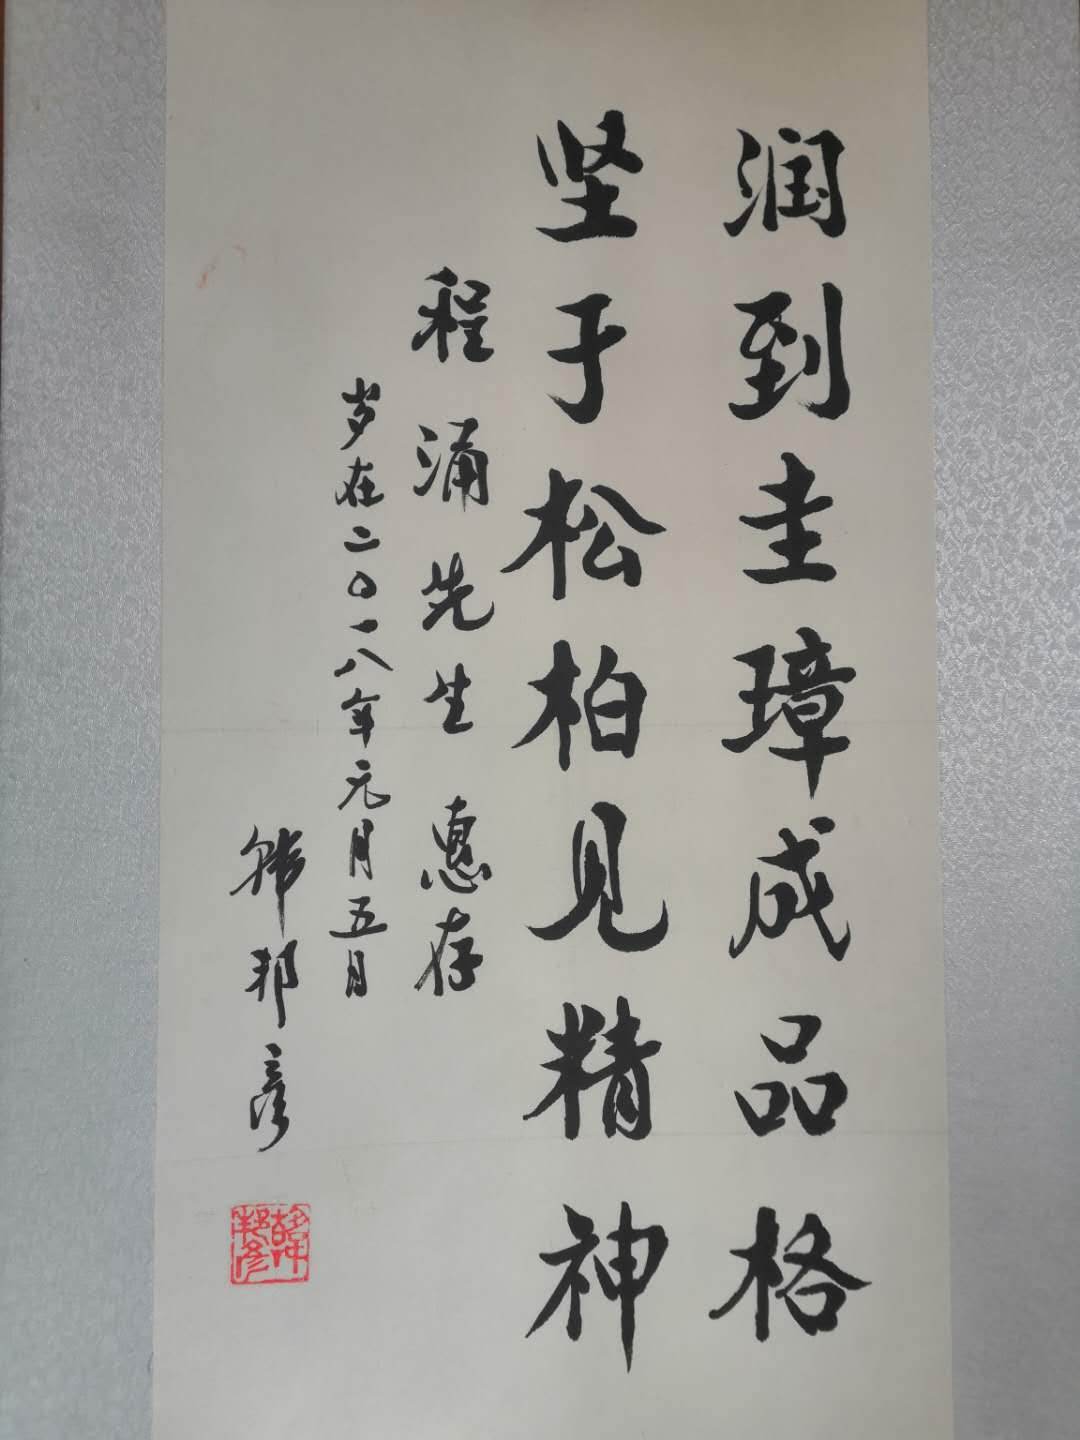 润到圭璋成品格
坚于松柏见精神
程涌先生惠存
岁在二〇一八年元月五日
韩邦彦
韩邦彦